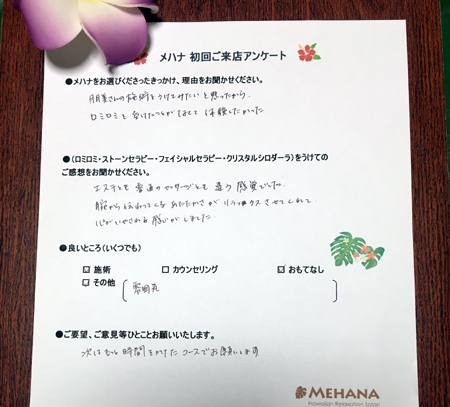 メハナ 初回ご来店アンケート
●メハナをお選びくださったきっかけ、理由をお聞かせください。
朋美さんの施術をうけてみたいと思ったから。
ロミロミを受けたことがなくて 体験したかった
●(ロミロミ・ストーンセラピー・フェイシャルセラピー・クリスタルシロダーラ)をうけての
ご感想をお聞かせください。
エステとも 普通のマッサージとも 違う 感覚でした。
腕から伝わってくる あたたかさが リラックスさせてくれて、
心がいやされる 感じがしました。
●良いところ(いくつでも)
☑ 施術 ☐ カウンセリング ☑ おもてなし
☑ その他 ( 雰囲気 )
●ご要望、ご意見等ひとことお願いいたします。
次は もっと 時間をかけた コースで お願いします
MEHANA
Hawaiian Relaxation Salon